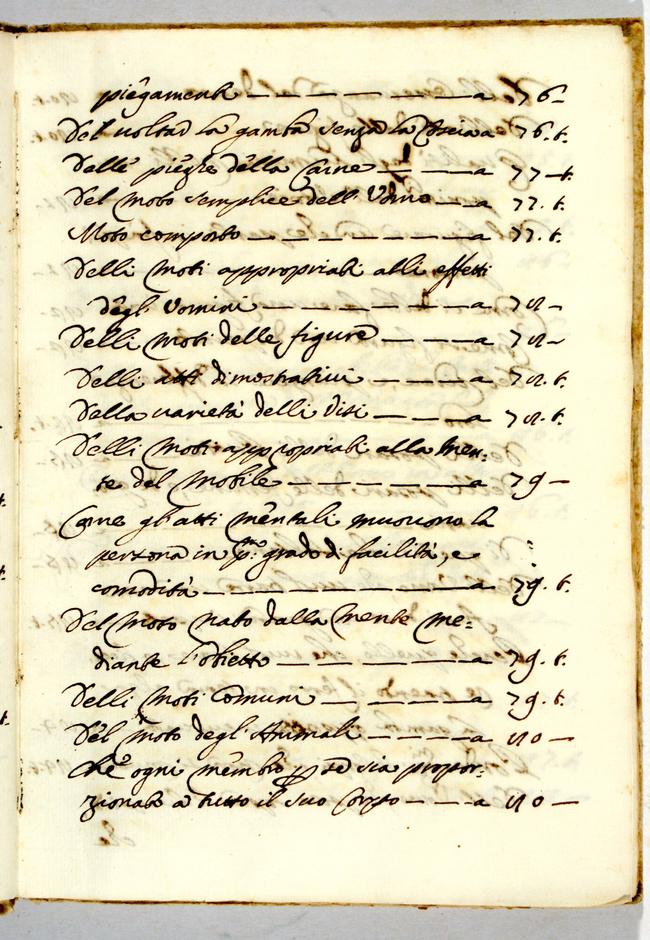 piegamenti — — — — — a 76 –
Del voltar la gamba senza la Coscia a 76. t.
Delle pieghe della Carne — — a 77 – t.
Del moto semplice dell'Vomo — a 77. t.
Moto composto — — — — — a 77. t.
Delli moti appropriati alli effetti
degl'Vomini — — — — — a 78 –
Delli moti delle figure — — — a 78 –
Delli atti dimostrativi — — — a 78. t.
Della varietà delli Visi — — — a 78. t.
Delli moti appropriati alla men:
te del Mobile — — — — — a 79 –
Come gl'atti mentali muovono la
persona in p.mo grado di facilità, e
comodità — — — — — — a 79. t.
Del Moto nato dalla mente me=
diante l'obietto — — — — a 79. t.
Delli moti Comuni — — — a 79. t.
Del moto degl'Animali — — — a 80 —
Che ogni membro per se sia propor:
zionato a tutto il suo Corpo — — a 80 —